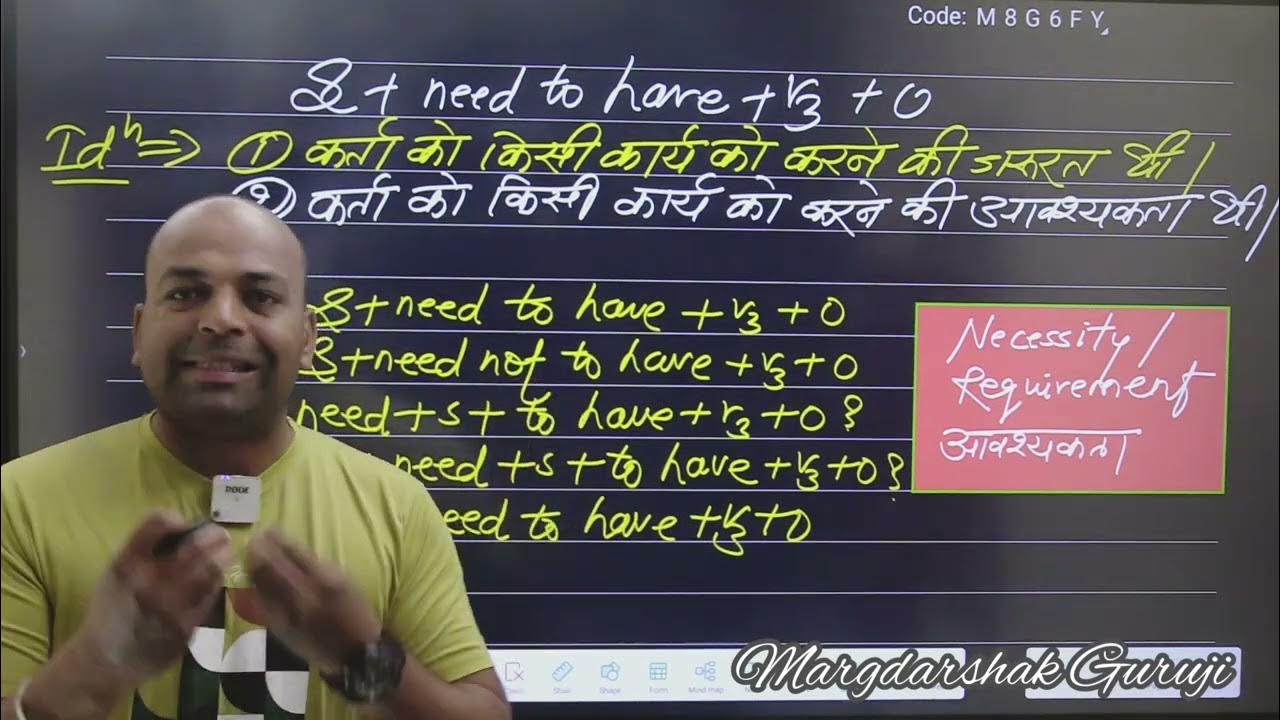 Code: M 8 G 6 F Y
S + need to have + V3 + O
Idn ⇒ ① कर्ता को किसी कार्य को करने की जरूरत थी।
② कर्ता को किसी कार्य को करने की आवश्यकता थी।
S + need to have + V3 + O
S + need not to have + V3 + O
need + S + to have + V3 + O ?
need + S + to have + V3 + O ?
eed to have + V3 + O
Necessity /
Requirement
आवश्यकता
RODE
Shape
Form
Mind map
Margdarshak Guruji